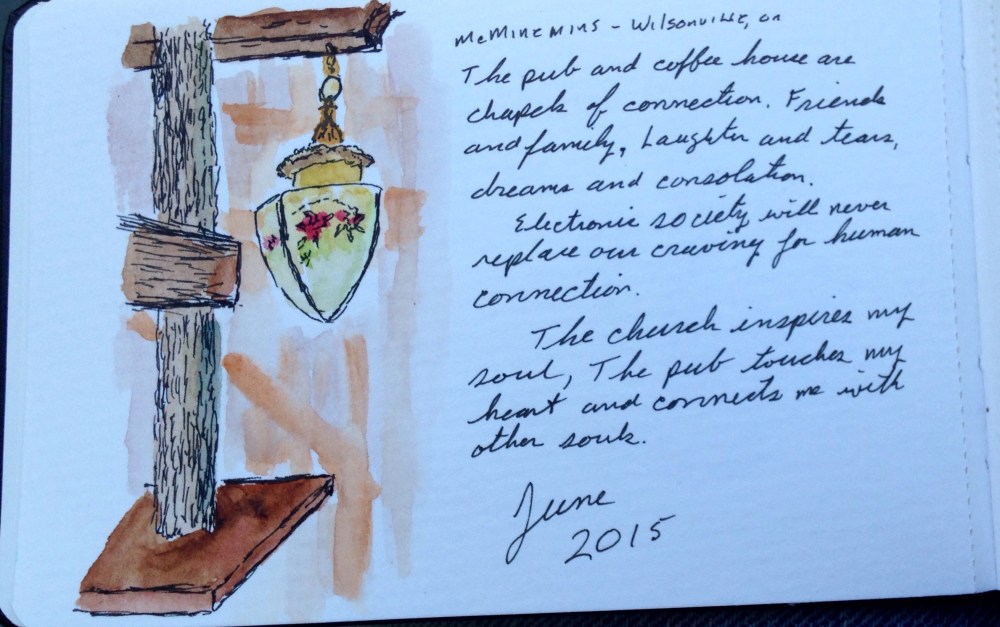 McMinemins - Wilsonville, OR
The pub and coffee house are
chapels of connection. Friends
and family, Laughter and tears,
dreams and consolation.
Electronic society will never
replace our craving for human
connection.
The church inspires my
soul, The pub touches my
heart and connects me with
other souls.
June
2015